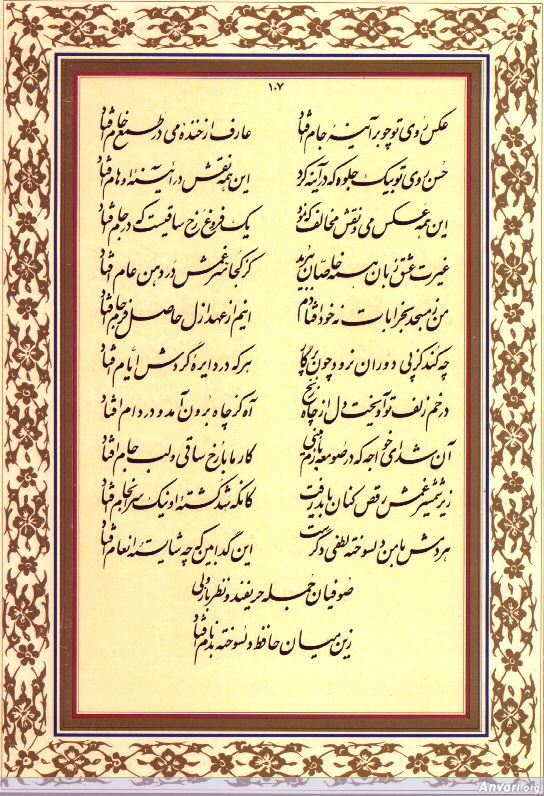 ۱۰۷
عکس روی تو چو بر آینهٔ جام افتاد عارف از خندهٔ می در طمع خام افتاد
حسن روی تو بیک جلوه که در آینه کرد این همه نقش در آیینهٔ اوهام افتاد
این همه عکس می و نقش مخالف که نمود یک فروغ رخ ساقیست که در جام افتاد
غیرت عشق زبان همه خاصان ببرید کز کجا سر غمش در دهن عام افتاد
من ز مسجد بخرابات نه خود افتادم اینم از عهد ازل حاصل فرجام افتاد
چه کند کز پی دوران نرود چون پرگار هر که در دایرهٔ گردش ایام افتاد
در خم زلف تو آویخت دل از چاه زنخ آه کز چاه برون آمد و در دام افتاد
آن شد ای خواجه که در صومعه بازم بینی کار ما با رخ ساقی و لب جام افتاد
زیر شمشیر غمش رقص کنان باید رفت کانکه شد کشتهٔ او نیک سرانجام افتاد
هر دمش با من دلسوخته لطفی دگرست این گدا بین که چه شایستهٔ انعام افتاد
صوفیان جمله حریفند و نظرباز ولی
زین میان حافظ دلسوخته بدنام افتاد
Anvari.org